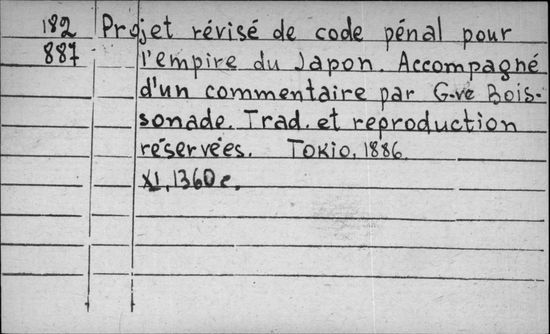 182 Projet révisé de code pénal pour
887 l'empire du Japon. Accompagné
d'un commentaire par G-ve Bois-
sonade. Trad. et reproduction
réservées. Tokio, 1886.
XI, 1360 c.